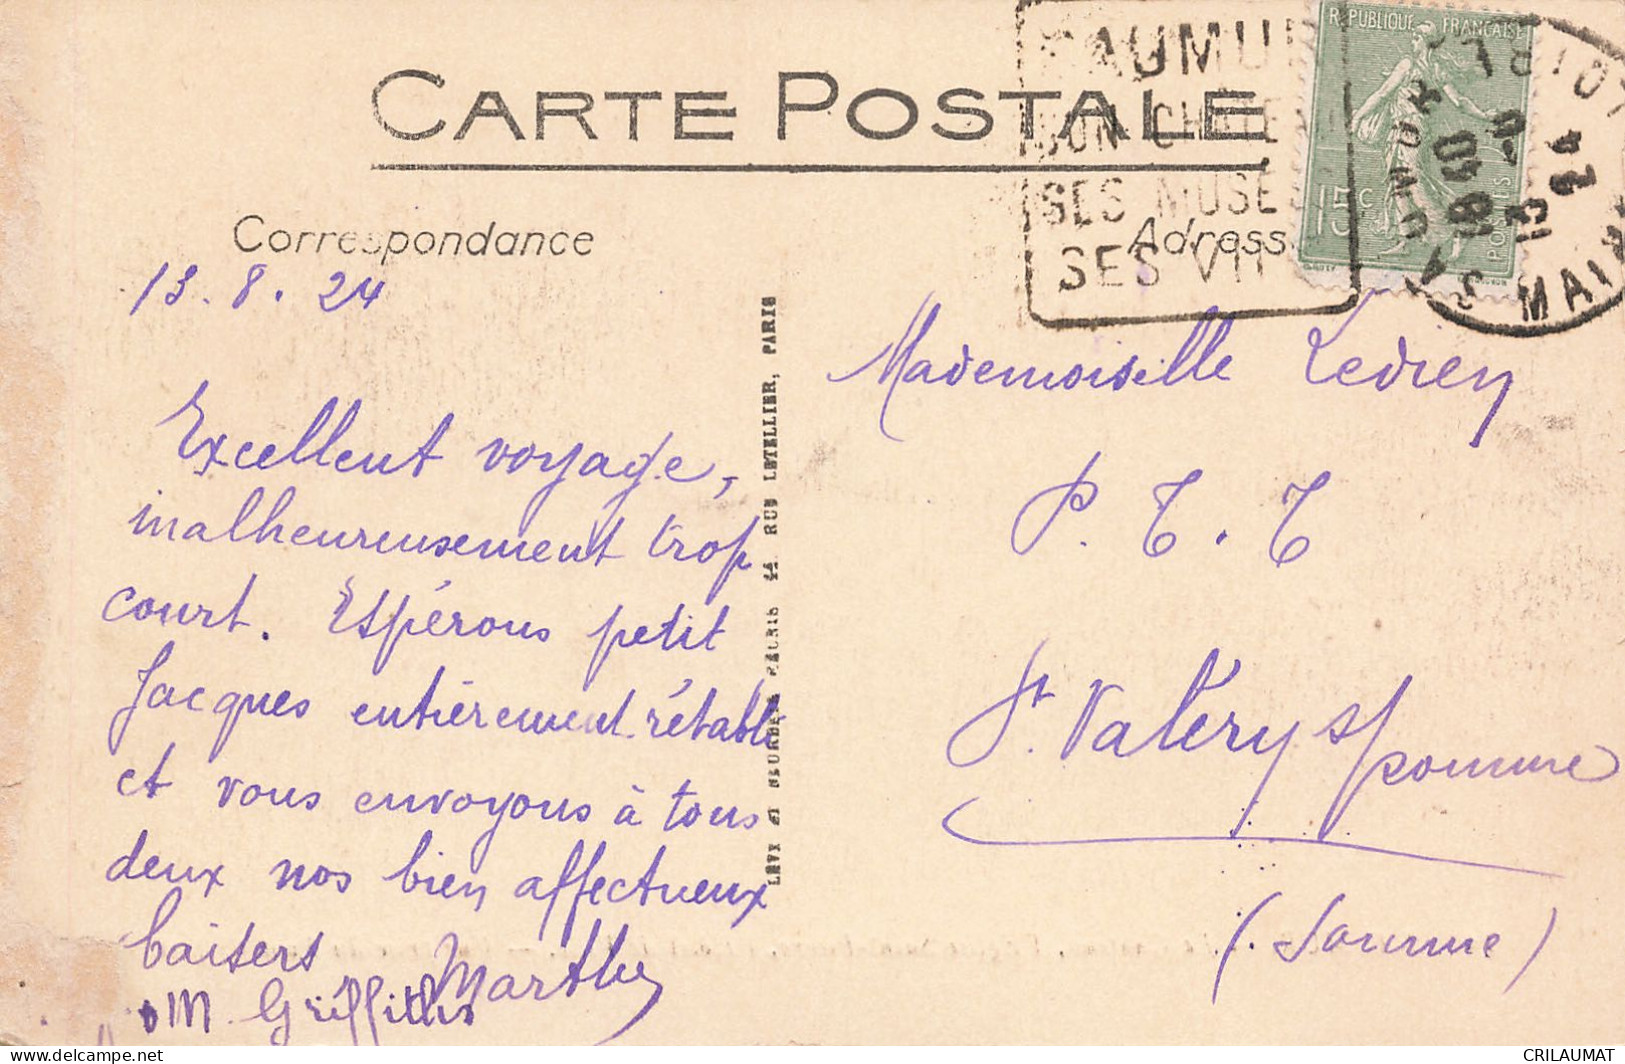 CARTE POSTALE
Correspondance
13.8.24
Excellent voyage,
malheureusement trop
court. Espérons petit
Jacques entièrement rétabli
et vous envoyons à tous
deux nos bien affectueux
baisers Marthe
M. Griffiths
LÉVY et NEURDEIN RÉUNIS 44, RUE LETELLIER, PARIS
SAUMUR
SON CHATEAU
SES MUSEES
SES VI
RÉPUBLIQUE FRANÇAISE
15c
POSTES
SAUMUR
18 40
13 -8
24
Adresse
Mademoiselle Ledien
P. T. T
St Valéry s/ Somme
(Somme)
CRILAUMAT